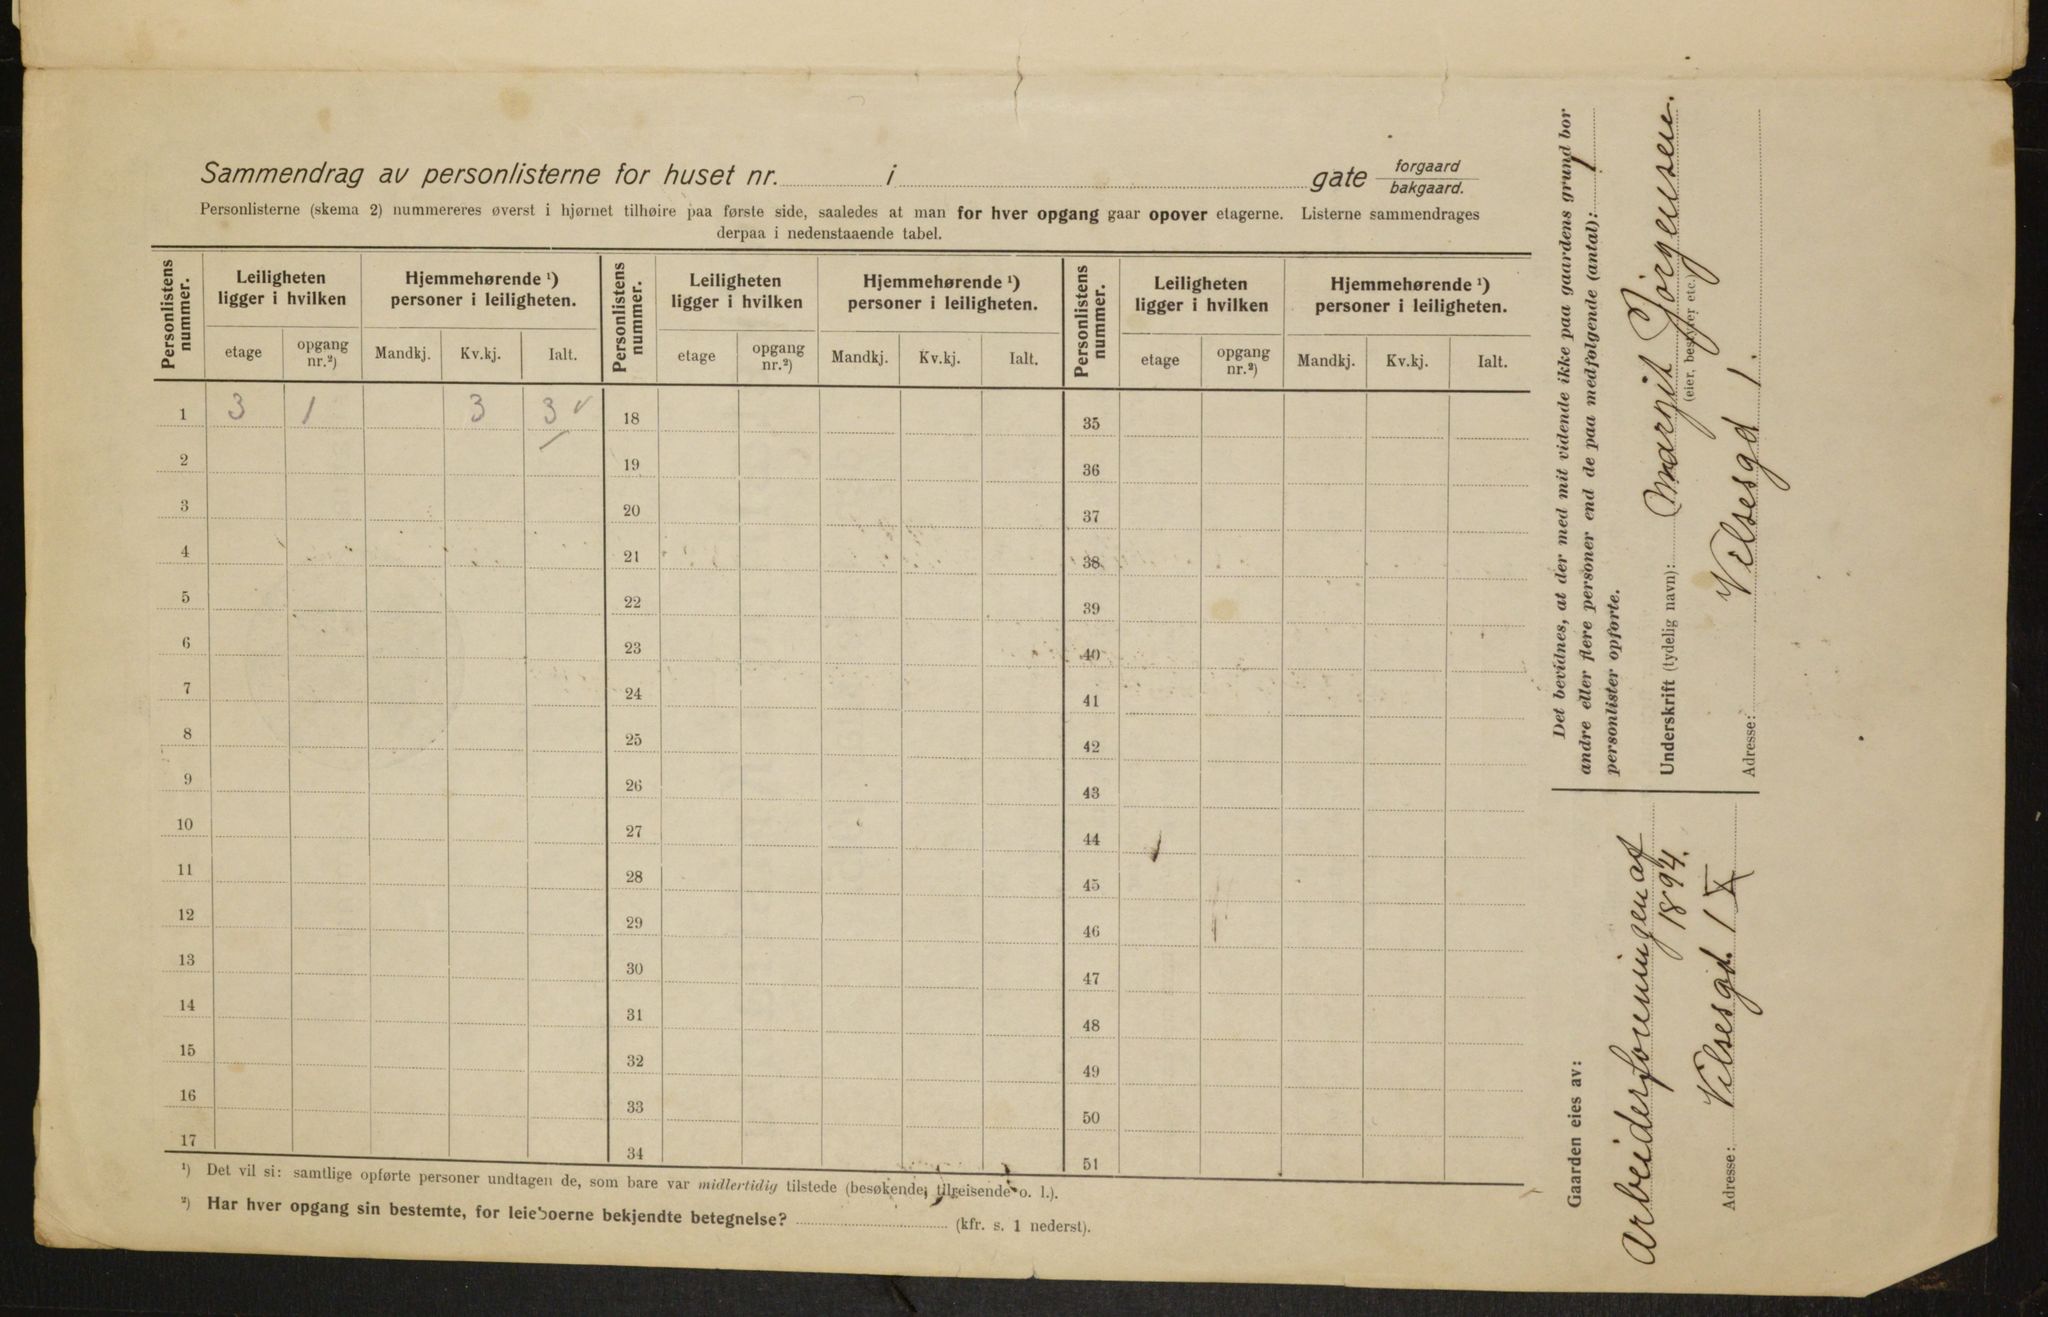 Sammendrag av personlisterne for huset nr. i gate forgaard bakgaard.
Personlisterne (skema 2) nummereres øverst i hjørnet tilhøire paa første side, saaledes at man for hver opgang gaar opover etagerne. Listerne sammendrages
derpaa i nedenstaaende tabel.
Personlistens nummer. Leiligheten ligger i hvilken Hjemmehørende ¹) personer i leiligheten. Personlistens nummer. Leiligheten ligger i hvilken Hjemmehørende ¹) personer i leiligheten. Personlistens nummer. Leiligheten ligger i hvilken Hjemmehørende ¹) personer i leiligheten.
etage opgang nr.²) Mandkj. Kv.kj. Ialt. etage opgang nr.²) Mandkj. Kv.kj. Ialt. etage opgang nr.²) Mandkj. Kv.kj. Ialt.
1 3 1 3 3 ✓ 18 35
2 19 36
3 20 37
4 21 38
5 22 39
6 23 40
7 24 41
8 25 42
9 26 43
10 27 44
11 28 45
12 29 46
13 30 47
14 31 48
15 32 49
16 33 50
17 34 51
¹) Det vil si: samtlige opførte personer undtagen de, som bare var midlertidig tilstede (besøkende, tilreisende o. l.).
²) Har hver opgang sin bestemte, for leieboerne bekjendte betegnelse? (kfr. s. 1 nederst).
Det bevidnes, at der med mit vidende ikke paa gaardens grund bor
andre eller flere personer end de paa medfølgende (antal): 1
personlister opførte.
Underskrift (tydelig navn): Margit Jörgensen.
(eier, bestyrer etc.)
Adresse: Vilsesgd 1.
Gaarden eies av:
Arbeiderforeningen af
1894.
Adresse: Vilsesgd. 1 X